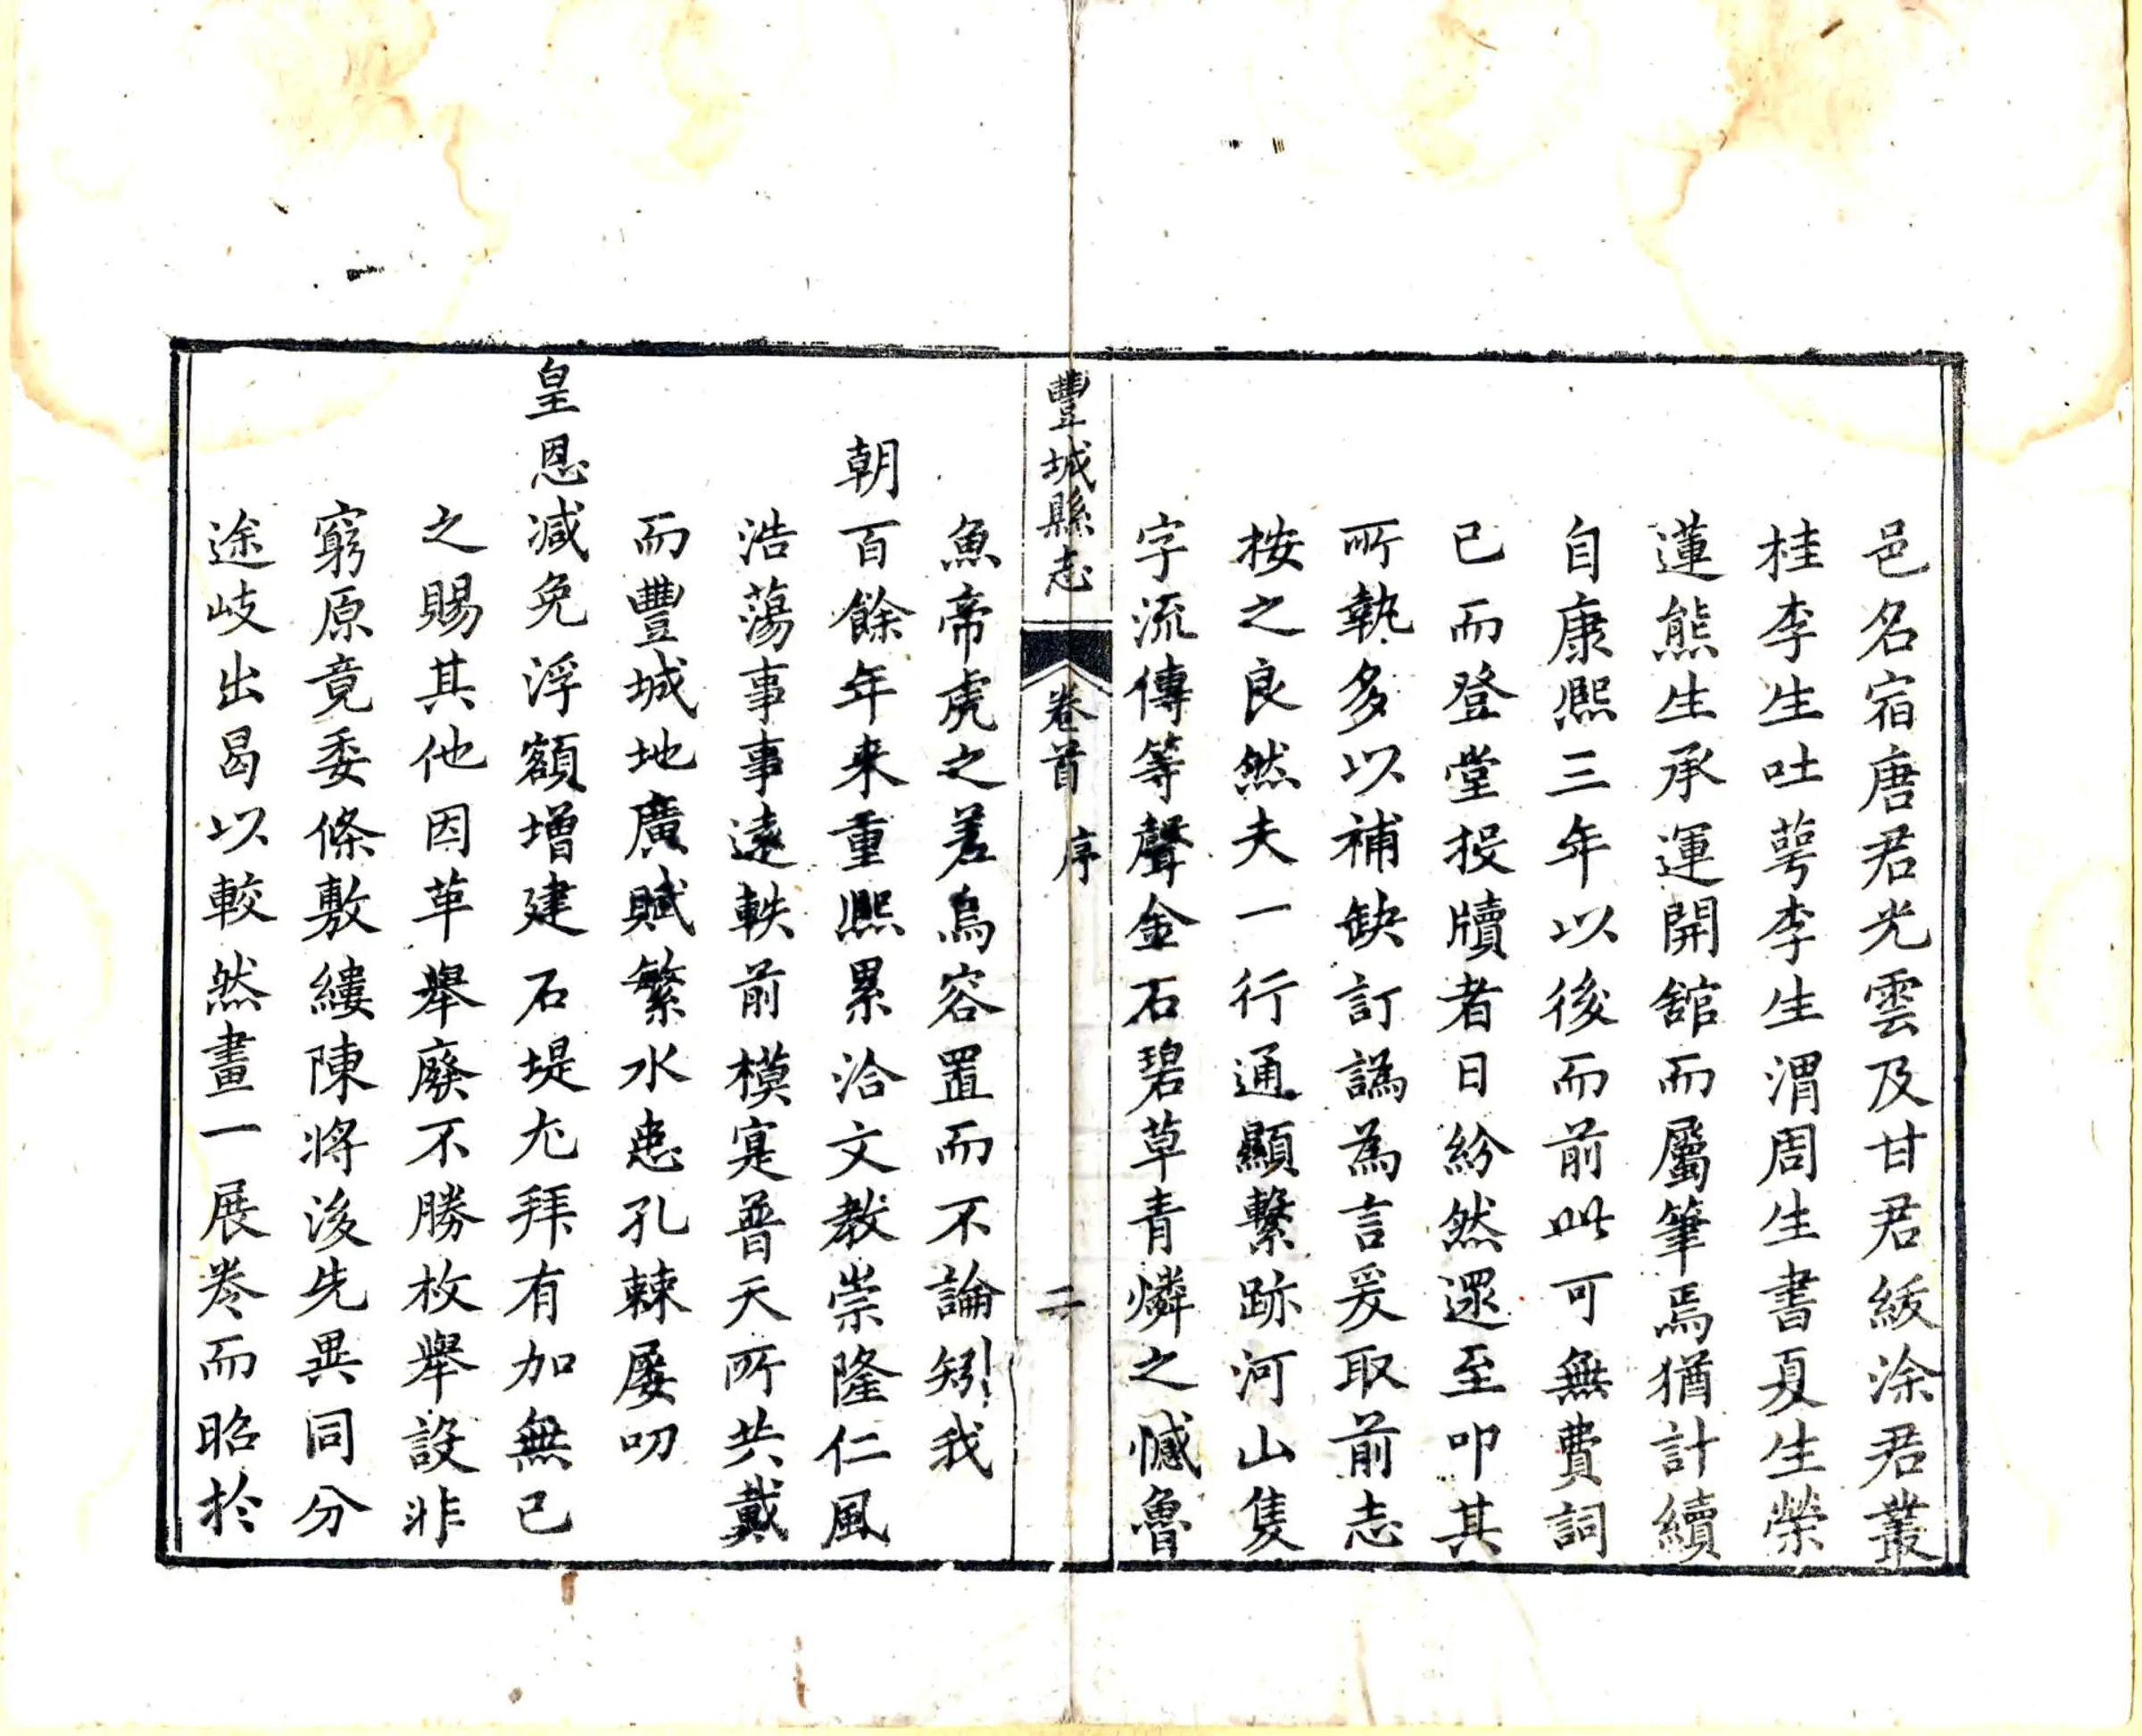 邑名宿唐君光雲及甘君紱涂君叢
桂李生吐蕚李生渭周生書夏生榮
蓮熊生承運開舘而屬筆焉猶計續
自康熙三年以後而前此可無費詞
已而登堂投牘者日紛然遝至叩其
所執多以補缺訂譌為言爰取前志
按之良然夫一行通顯繫跡河山隻
字流傳等聲金石碧草青燐之憾魯
豐城縣志 卷首 序 二
魚帝虎之差烏容置而不論矧我
朝百餘年来重熙累洽文教崇隆仁風
浩蕩事事遠軼前模寔普天所共戴
而豐城地廣賦繁水患孔棘屡叨
皇恩减免浮額增建石堤尤拜有加無已
之賜其他因革舉廢不勝枚舉設非
窮原竟委條敷縷陳将後先異同分
途岐出曷以較然畫一展卷而昭於